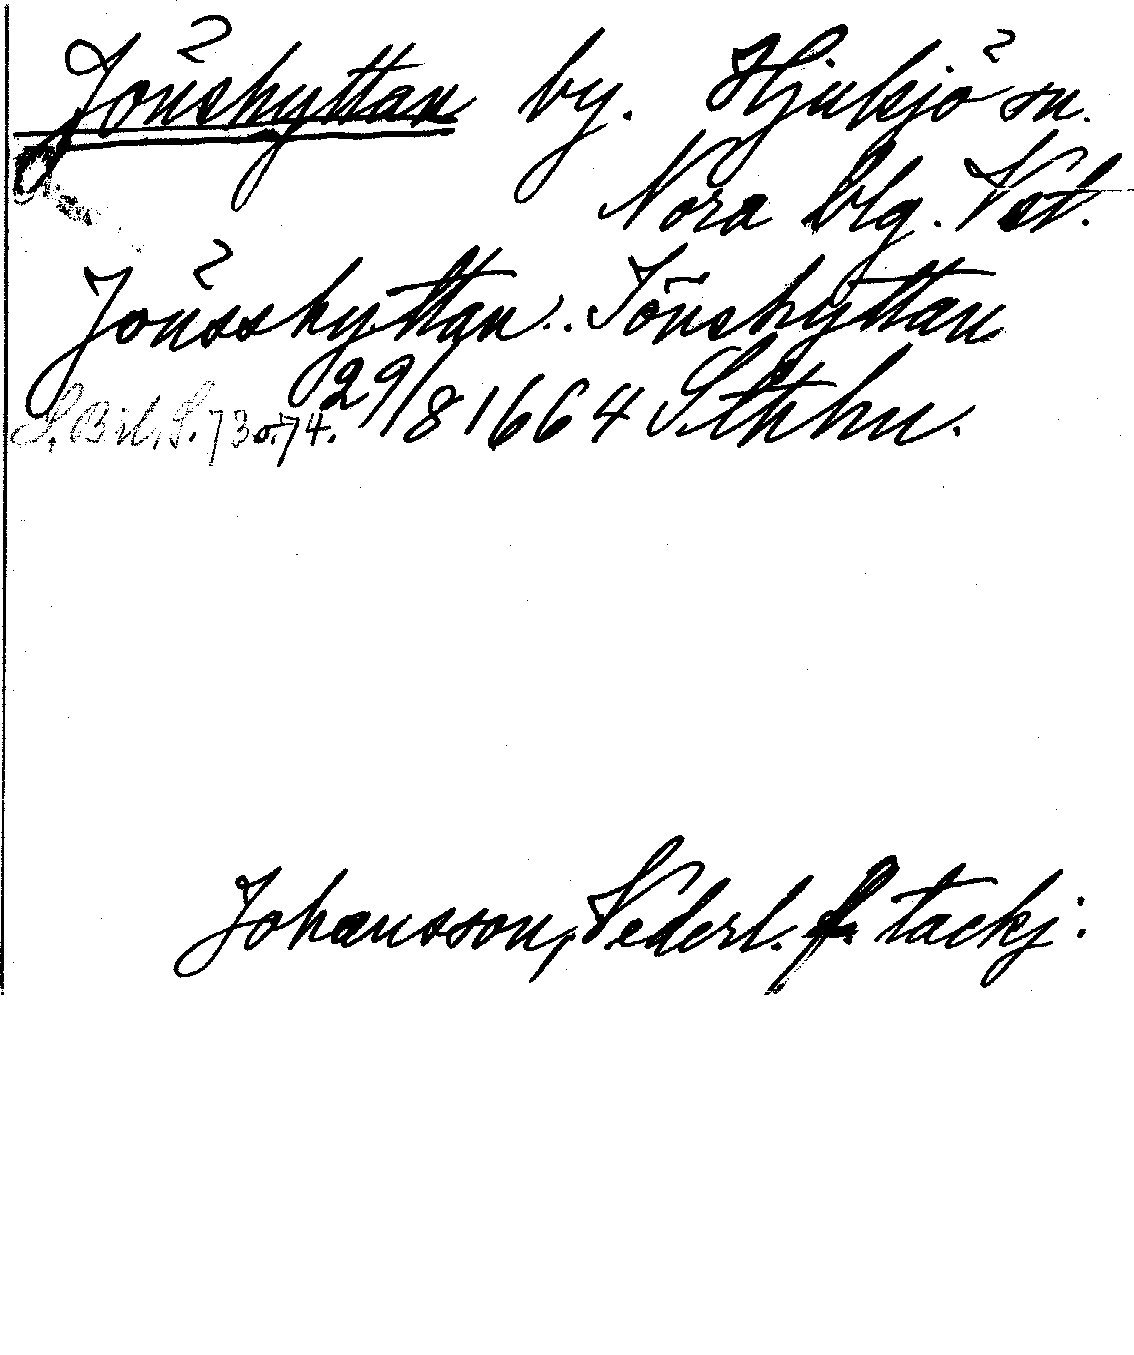 Jönshyttan by. Hjulsjö sn.
Nora blg. Vst.
Jönsshyttan.. Jönshyttan
S. Bil. S. 73 o. 74. 29/8 1664 Sthhu.
Johansson, Nederl. f. tackj.